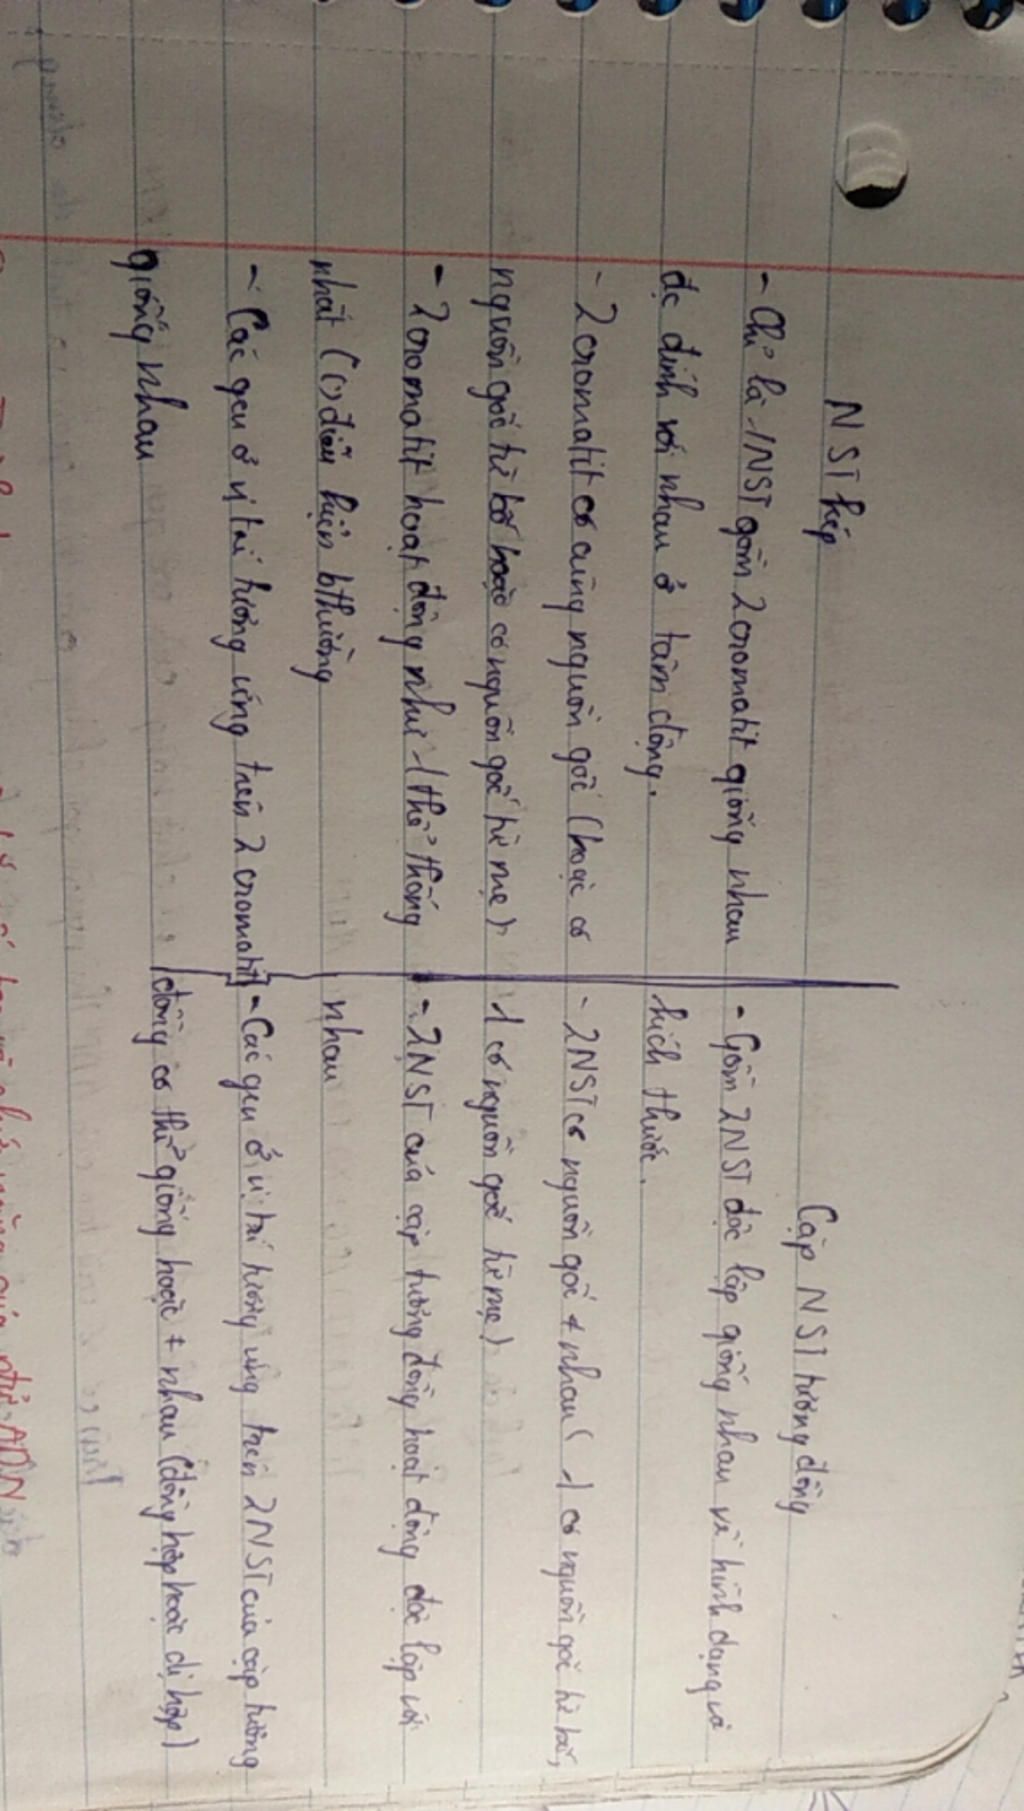 NST kép
- Chỉ là 1 NST gồm 2 cromatit giống nhau
đc dính với nhau ở tâm động.
- 2 cromatit có cùng nguồn gốc (hoặc có
nguồn gốc từ bố hoặc có nguồn gốc từ mẹ)
- 2 cromatit hoạt động như 1 thể thống
nhất (ở điều kiện bthường
- Các gen ở vị trí tương ứng trên 2 cromatit
giống nhau
Cặp NST tương đồng
- Gồm 2 NST độc lập giống nhau về hình dạng và
kích thước.
- 2 NST có nguồn gốc ≠ nhau ( 1 có nguồn gốc từ bố,
1 có nguồn gốc từ mẹ)
- 2 NST của cặp tương đồng hoạt động độc lập với
nhau
- Các gen ở vị trí tương ứng trên 2 NST của cặp tương
đồng có thể giống hoặc ≠ nhau (đồng hợp hoặc dị hợp)